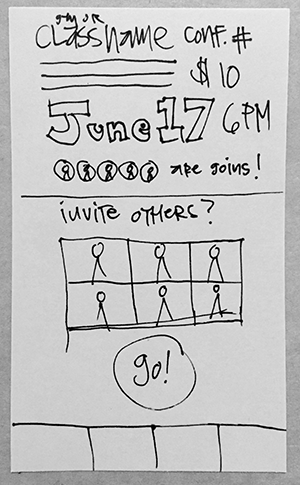 your
classname conf. #
$10
June 17 6PM
are going!
invite others?
go!